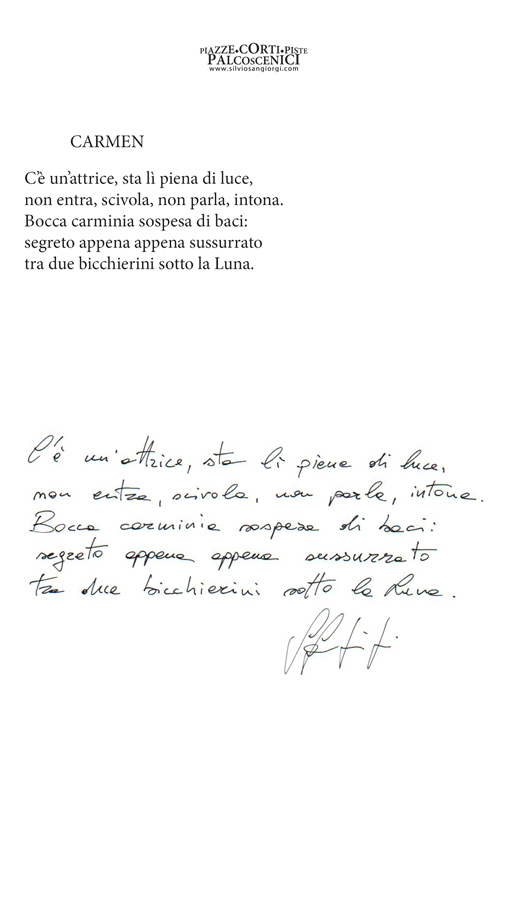 PIAZZE•CORTI•PISTE
PALCOSCENICI
www.silviosangiorgi.com
CARMEN
C'è un'attrice, sta lì piena di luce,
non entra, scivola, non parla, intona.
Bocca carminia sospesa di baci:
segreto appena appena sussurrato
tra due bicchierini sotto la Luna.
C'è un'attrice, sta lì piena di luce,
non entra, scivola, non parla, intona.
Bocca carminia sospesa di baci:
segreto appena appena sussurrato
tra due bicchierini sotto la Luna.